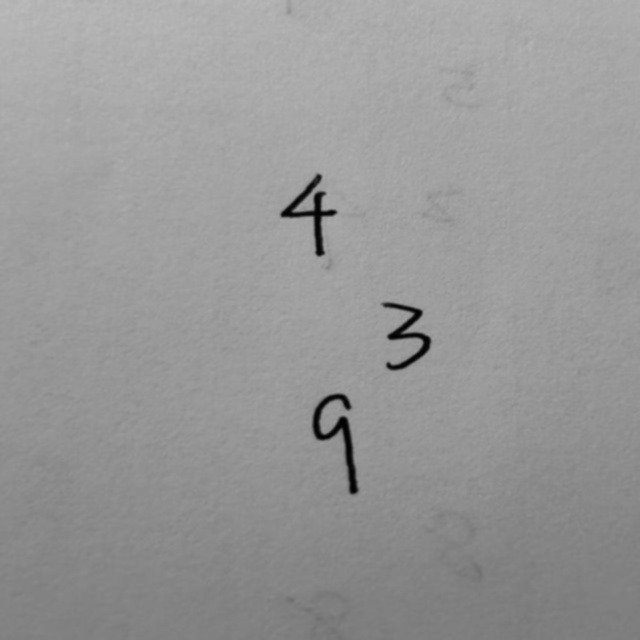 4
3
9